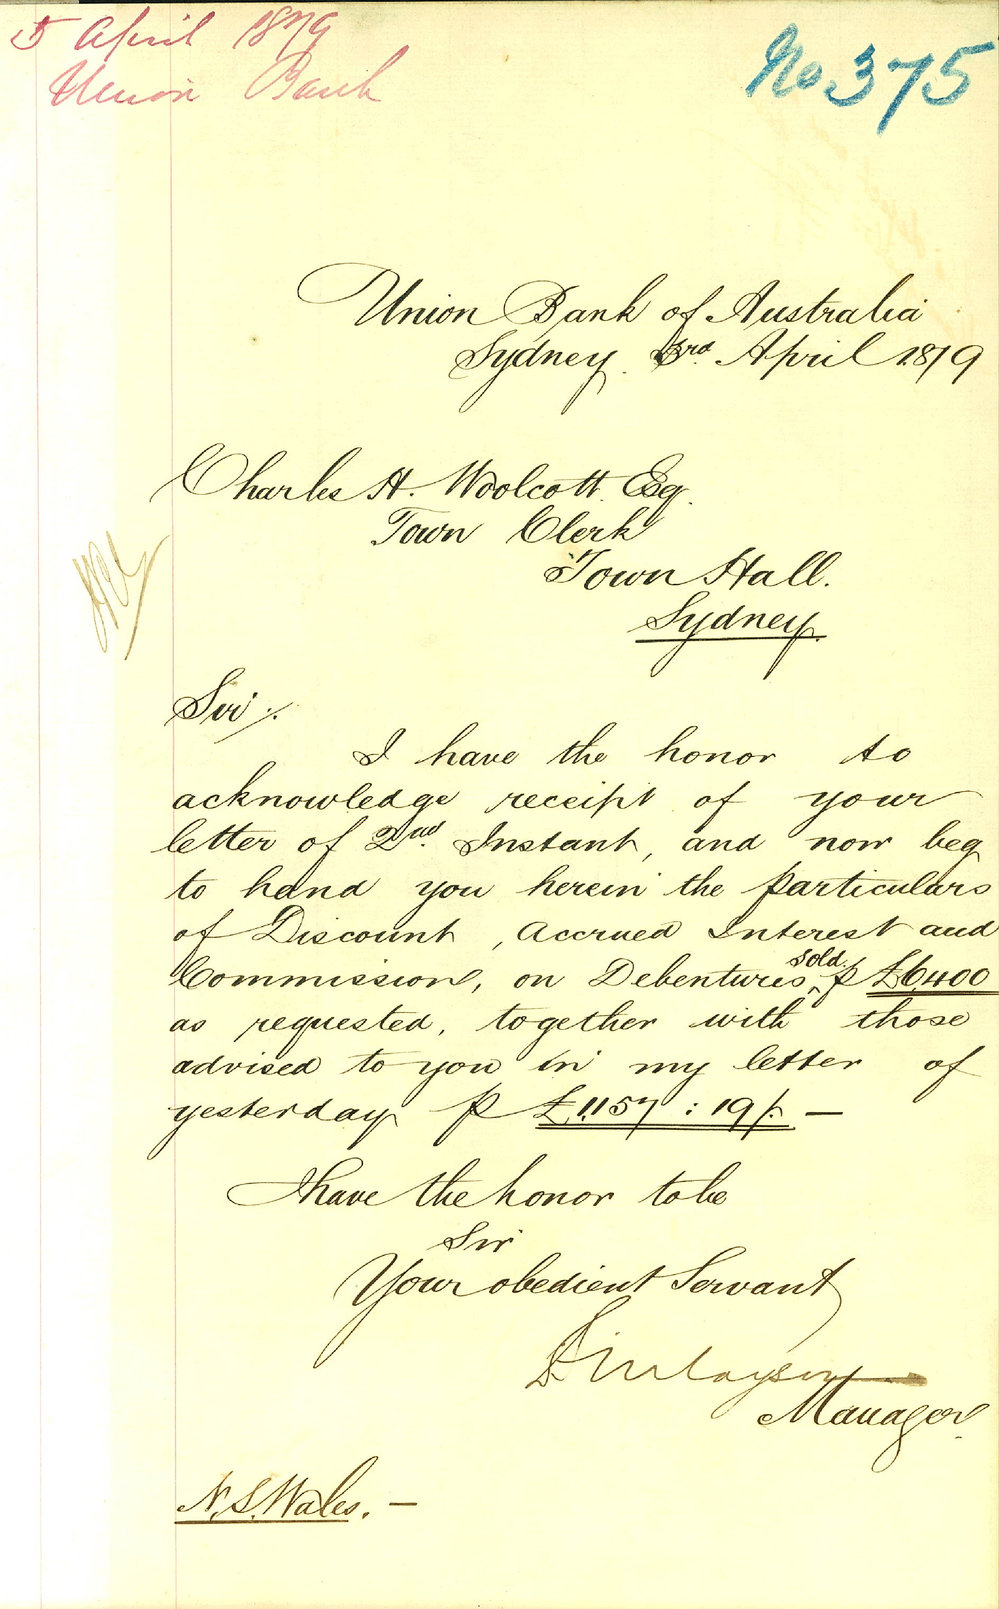 5 April 1879
Union Bank
No. 375
Union Bank of Australia
Sydney. 3rd April 1879
Charles H. Woolcott. Esq.
Town Clerk
Town Hall.
Sydney.
Sir/.
I have the honor to
acknowledge receipt of your
letter of 2nd. Instant, and now beg
to hand you herein the particulars
of Discount, Accrued Interest and
Commission, on Debentures sold p £6,400
as requested, together with those
advised to you in my letter of
yesterday p £1,157 : 19/. —
I have the honor to be
Sir
Your obedient Servant
Finlayson
Manager.
N.S. Wales. —